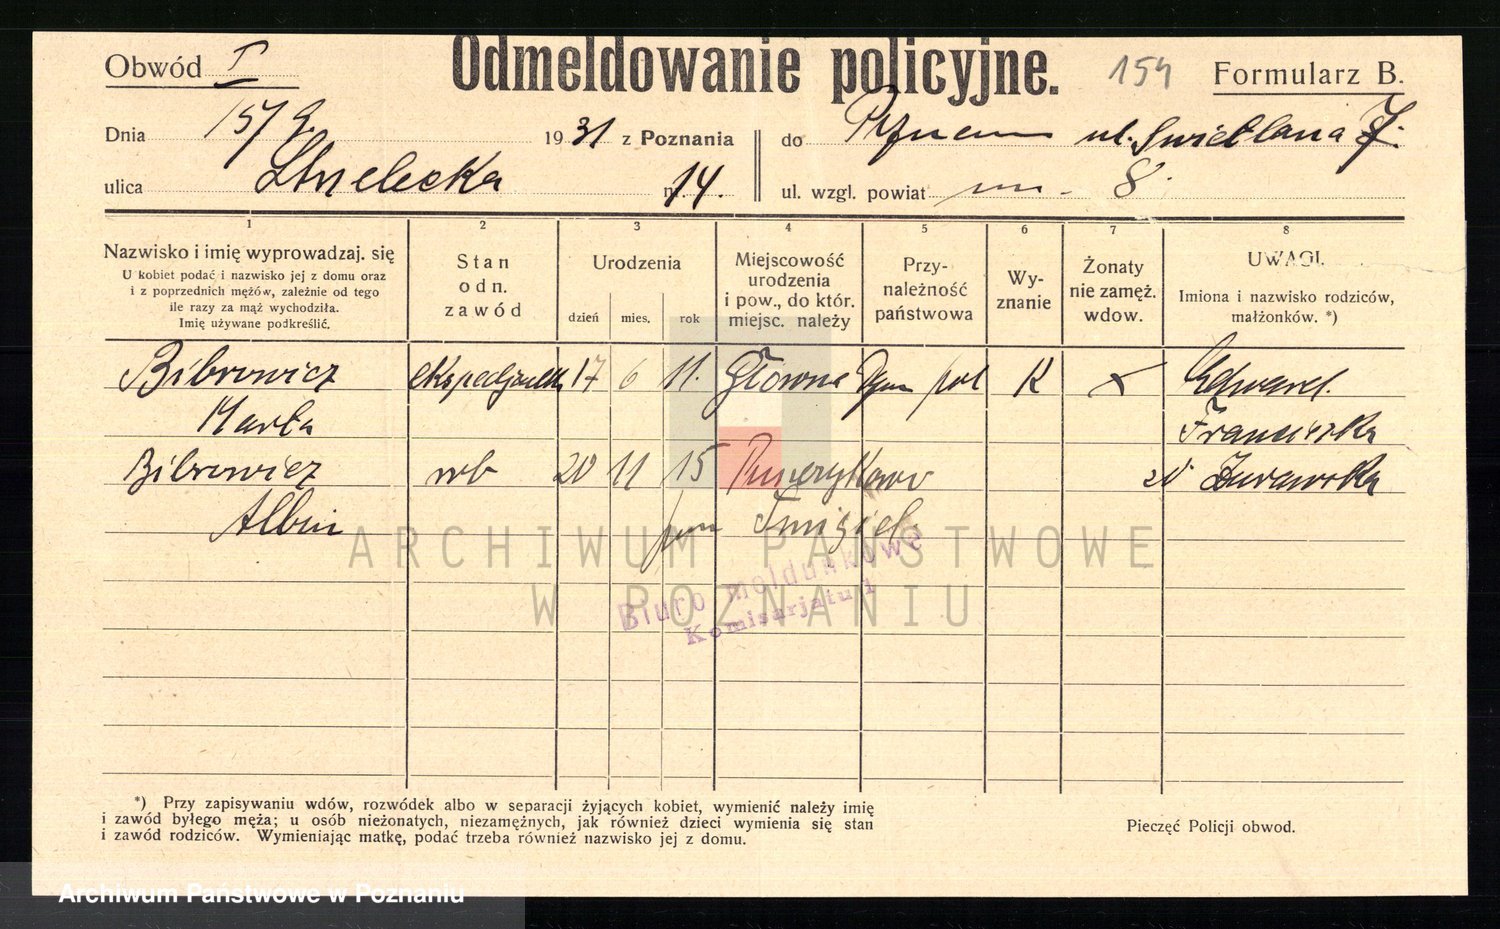 Obwód I
Odmeldowanie policyjne.
154
Formularz B.
Dnia 15/9 1931 z Poznania
do ul. Swietlana 7.
ulica Strzelecka nr. 14.
ul. wzgl. powiat 8
1 2 3 4 5 6 7 8
Nazwisko i imię wyprowadzaj. się
U kobiet podać i nazwisko jej z domu oraz
i z poprzednich mężów, zależnie od tego
ile razy za mąż wychodziła.
Imię używane podkreślić.
Stan
odn.
zawód
Urodzenia
dzień mies. rok
Miejscowość
urodzenia
i pow., do któr.
miejsc. należy
Przy-
należność
państwowa
Wy-
znanie
Żonaty
nie zamęż.
wdow.
UWAGI.
Imiona i nazwisko rodziców,
małżonków. *)
Bibrowicz 17 6 11. Główna pol K x Edward.
Marta Franciszka
Bibrowicz rob 20 11 15 zd Zurawska
Albin pow Śmigiel.
ARCHIWUM PAŃSTWOWE
W POZNANIU
Biuro meldunkowe
Komisarjatu I
*) Przy zapisywaniu wdów, rozwódek albo w separacji żyjących kobiet, wymienić należy imię
i zawód byłego męża; u osób nieżonatych, niezamężnych, jak również dzieci wymienia się stan
i zawód rodziców. Wymieniając matkę, podać trzeba również nazwisko jej z domu.
Pieczęć Policji obwod.
Archiwum Państwowe w Poznaniu